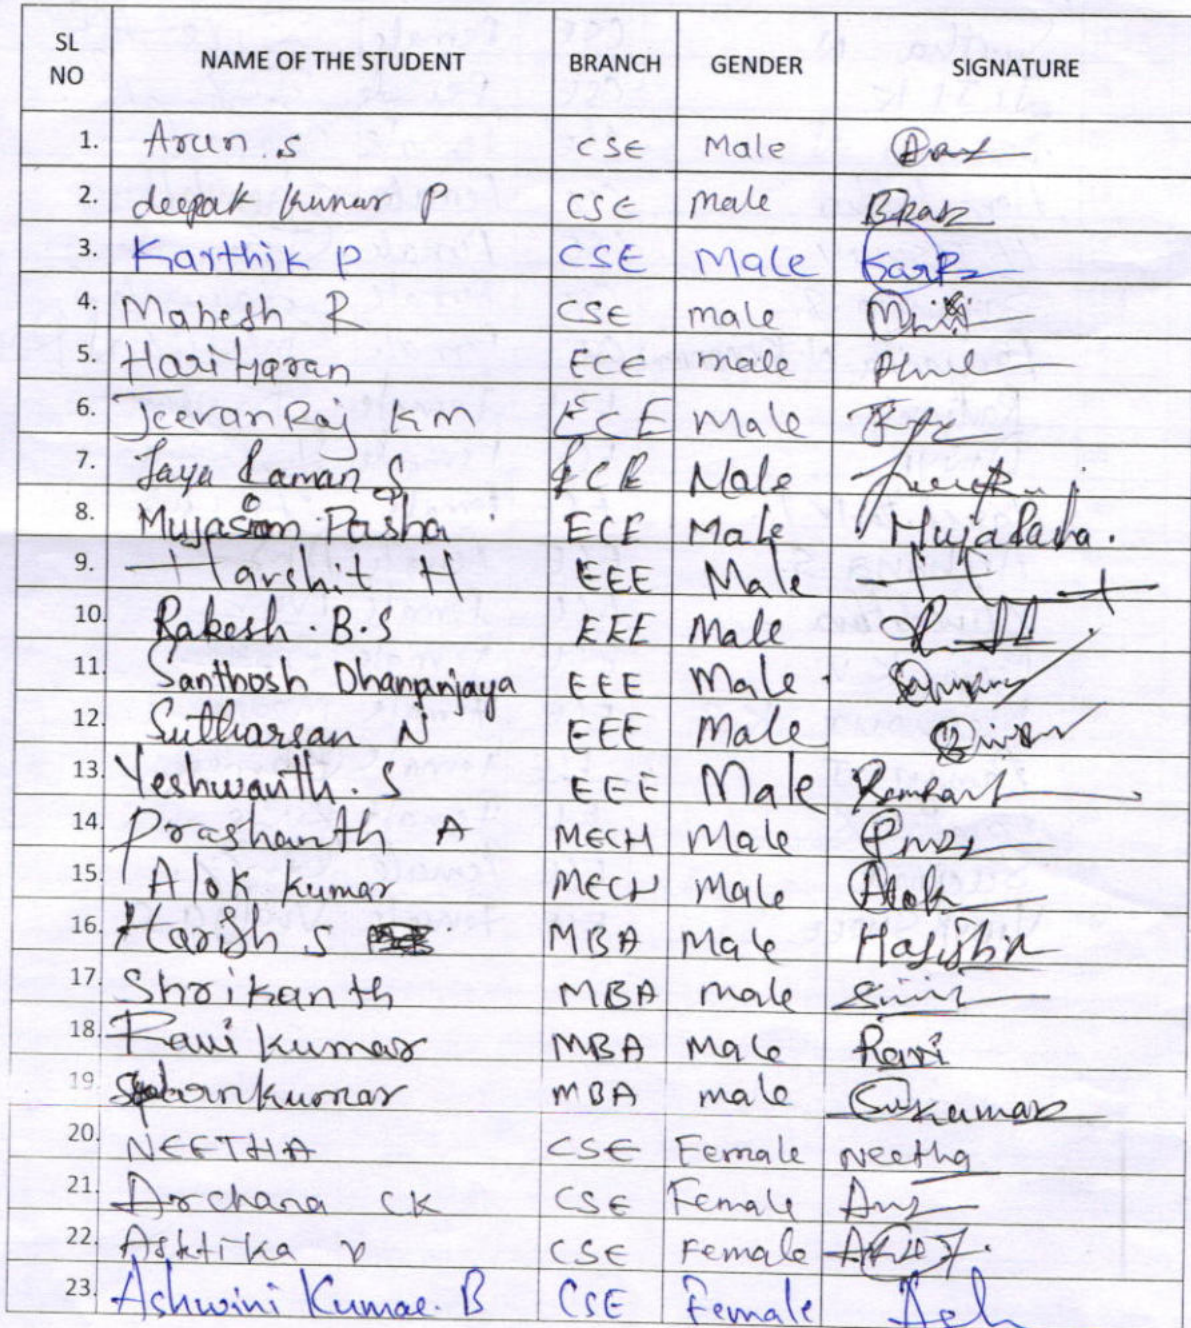 SL NO NAME OF THE STUDENT BRANCH GENDER SIGNATURE
1. Arun .S CSE Male
2. deepak kumar P CSE male
3. Karthik P CSE Male
4. Mahesh R CSE male
5. Hariharan ECE male
6. Jeevan Raj K m ECE Male
7. Jaya Raman S ECE Male
8. Mujasim Pasha ECE Male
9. Harshit H EEE Male
10. Rakesh . B.S EEE Male
11. Santhosh Dhananjaya EEE Male
12. Sutharsan N EEE Male
13. Yeshwanth . S EEE Male
14. Prashanth A MECH Male
15. Alok Kumar MECH Male Alok
16. Harish S MBA Male
17. Shrikanth MBA male
18. Ravi kumar MBA Male Ravi
19. MBA male
20. NEETHA CSE Female Neetha
21. Archana CK CSE Female
22. CSE Female
23. Ashwini Kumar. B CSE Female